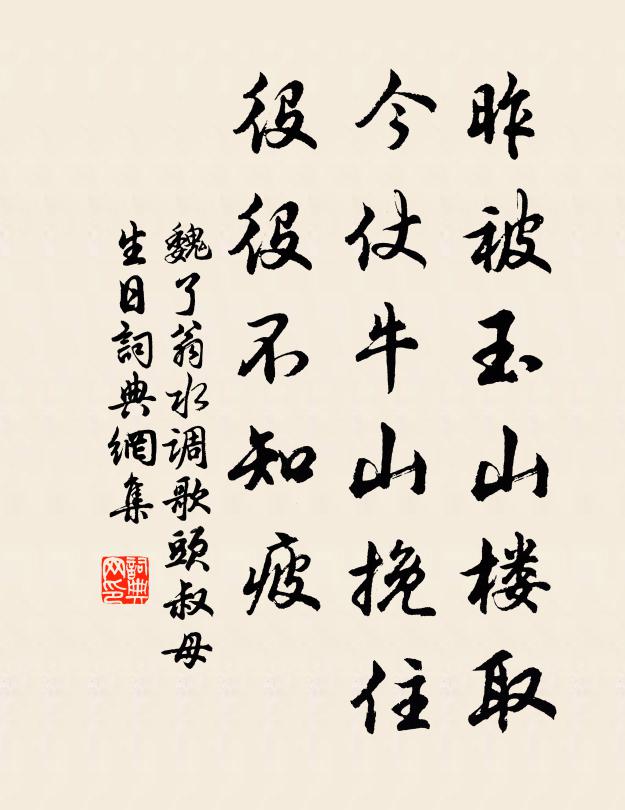 昨被玉山楼取
今仗牛山挽住
役役不知疲
魏了翁水调歌頭叔母
生日詞典網集
詞典网印